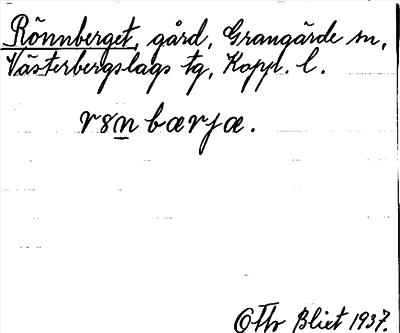 Rönnberget, gård, Grangärde sn,
Västerbergslags tg, Kopp. l.
rөn bærjæ.
Otto Blixt 1937.